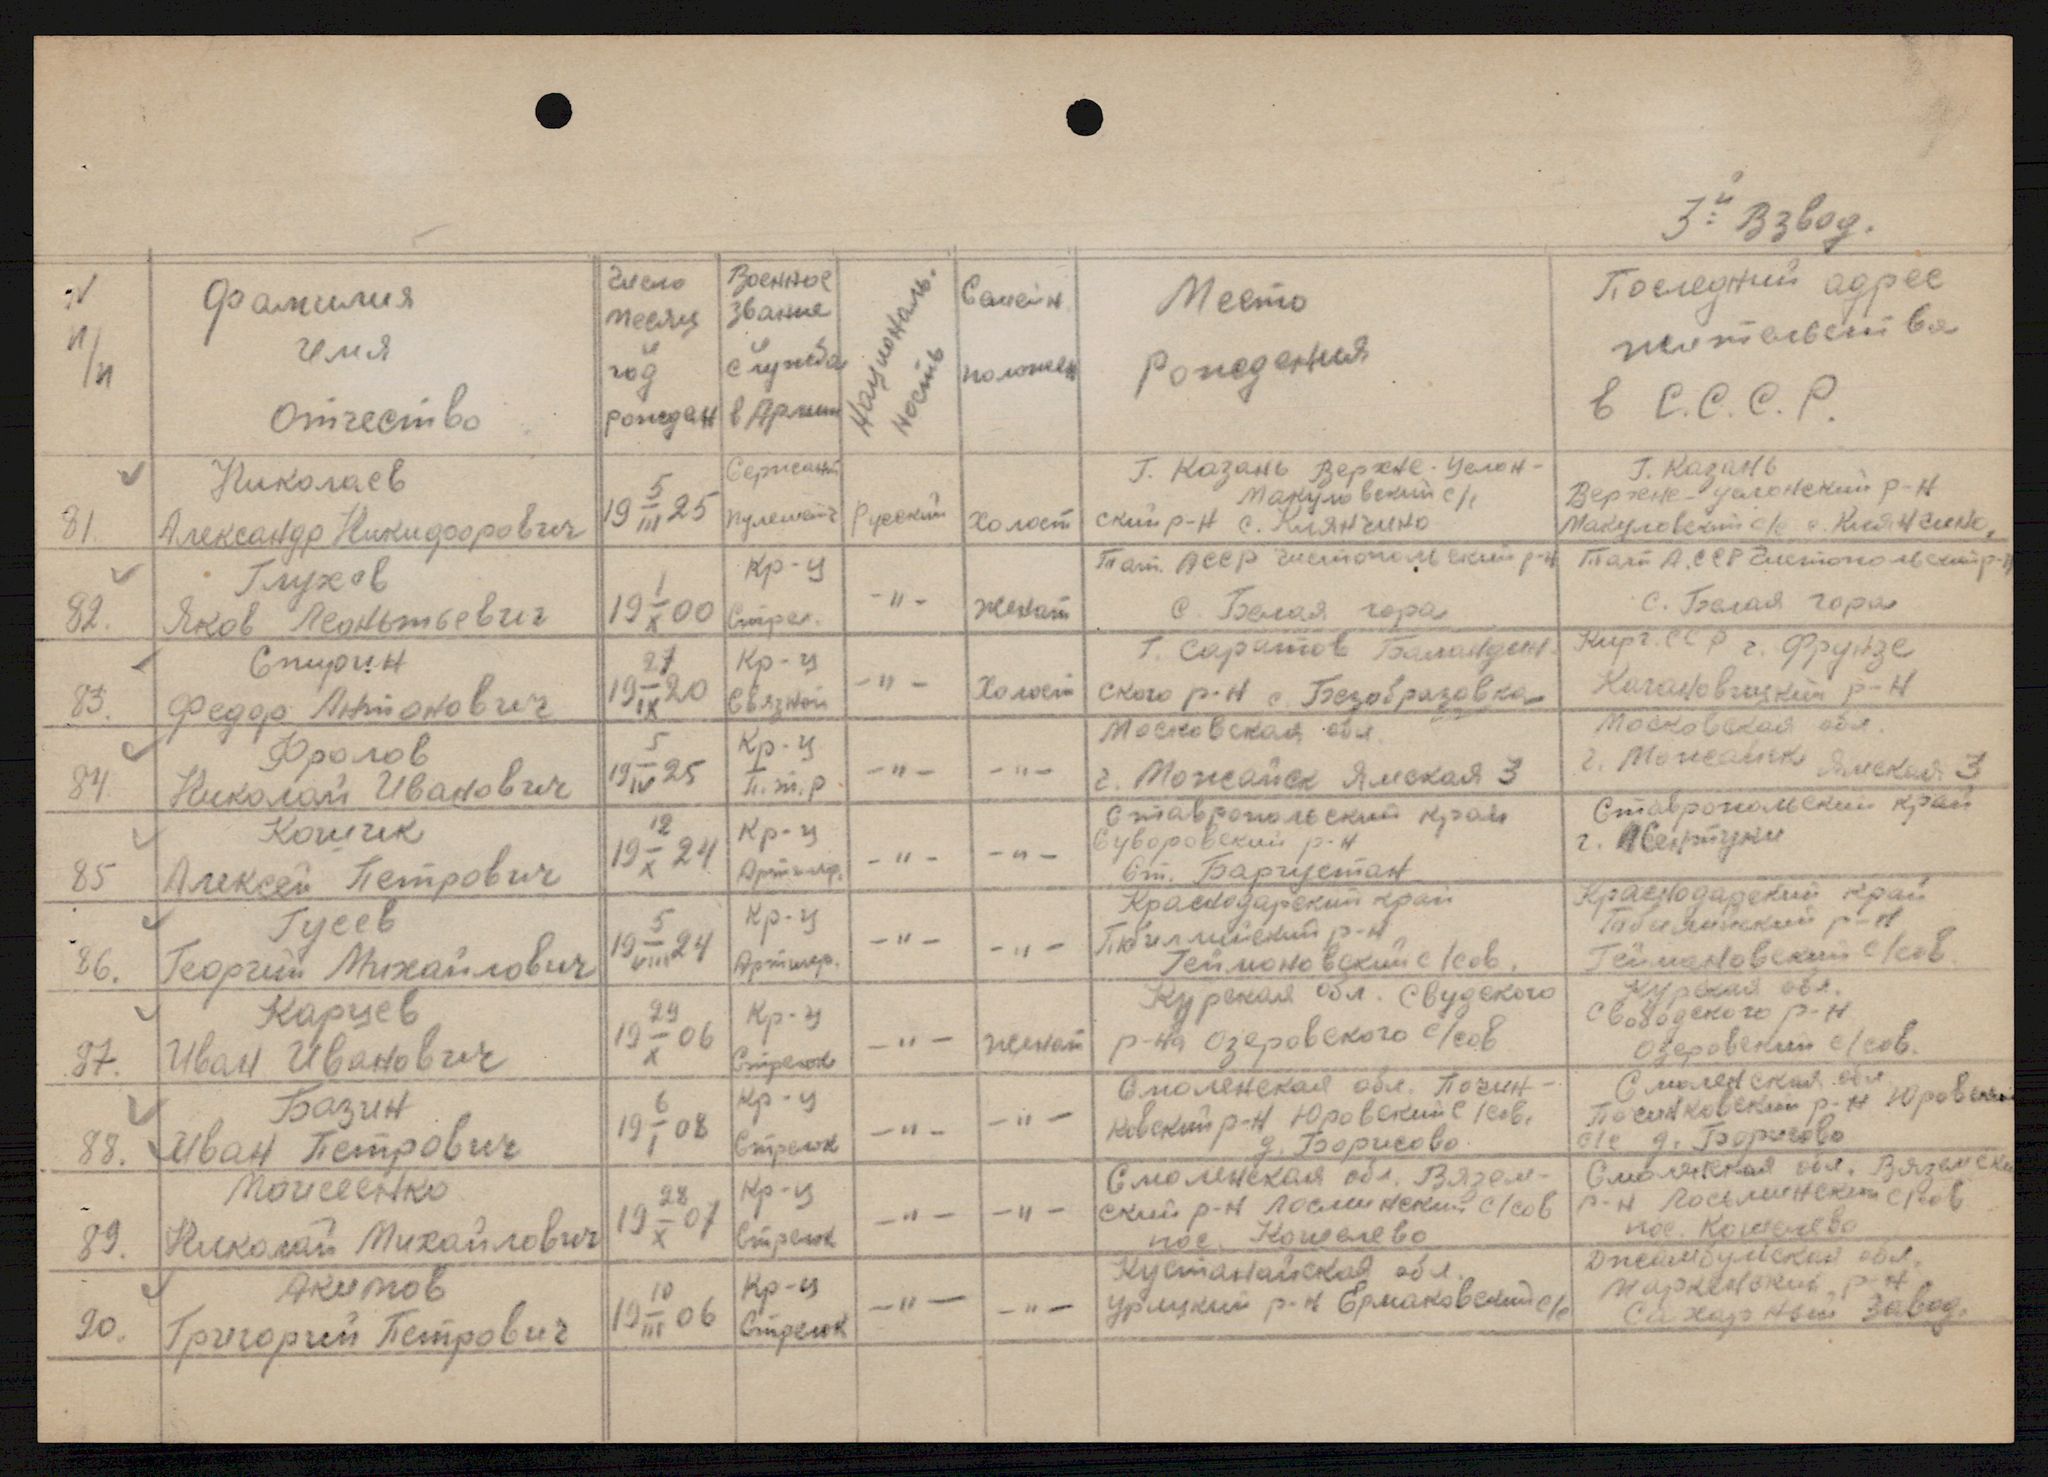 3й Взвод.
N п/п
Фамилия имя Отчество
Число месяц и год рожден
Военное звание и служба в Армии
Националь. ность
Семейн. положен
Место Рождения
Последний адрес жительства в С.С.С.Р.
81. Николаев Александр Никидфорович
19 5/III 25
Сержант Пулеметч
Русский
Холост
Г. Казань Верхне-Услон-
Макуловский с/с
ский р-н с. Клянчино
Г. Казань
Верхне-Услонский р-н
Макуловский с/с с. Клянчино.
82. Глухов Яков Леонтьевич
19 1/X 00
Кр-ц Стрел.
-"-
женат
Тат. АССР Чистопольский р-н
с. Белая гора
Тат А.ССР Чистопольский р-н
с. Белая гора
83. Спирин Федор Антонович
19 27/IX 20
Кр-ц Связной
-"-
Холост
Г. Саратов Баланден-
ского р-н с. Безобразовка
Кирг. ССР г. Фрунзе
Кагановичский р-н
84. Фролов Николай Иванович
19 5/IV 25
Кр-ц П.т.р
-"-
-"-
Московская обл.
г. Можайск Ямская 3
Московская обл.
г. Можайск Ямская 3
85 Кошик Алексей Петрович
19 12/X 24
Кр-ц Артилер.
-"-
-"-
Ставропольский край
Суворовский р-н
Ст. Баргустан
Ставропольский край
г. Есентуки
86. Гусев Георгий Михайлович
19 5/VIII 24
Кр-ц Артилер.
-"-
-"-
Краснодарский край
Тбиллийский р-н
Геймоновский с/сов.
Краснодарский край
Тбилийский р-н
Геймоновский с/сов.
87. Карцев Иван Иванович
19 29/X 06
Кр-ц Стрелок
-"-
женат
Курская обл. Свудского
р-на Озеровского с/сов
Курская обл.
Свободского р-н
Озеровский с/сов.
88. Базин Иван Петрович
19 6/I 08
Кр-ц Стрелок
-"-
-"-
Смоленская обл. Почин-
ковский р-н Юровский с/сов.
д. Борисово
Смоленская обл
Починковский р-н Юровский
с/с д. Борисово
89. Моисеенко Николай Михайлович
19 28/X 07
Кр-ц Стрелок
-"-
-"-
Смоленская обл. Вязем-
ский р-н Лосминский с/сов
пос. Кошелево
Смоленская обл. Вяземски
р-н Лосьминский с/сов
пос. Кошелево
90. Акимов Григорий Петрович
19 10/III 06
Кр-ц Стрелок
-"-
-"-
Кустанайская обл.
Урицкий р-н Ермаковский с/с
Джамбульская обл.
Маркенский р-н
Сахарный завод.